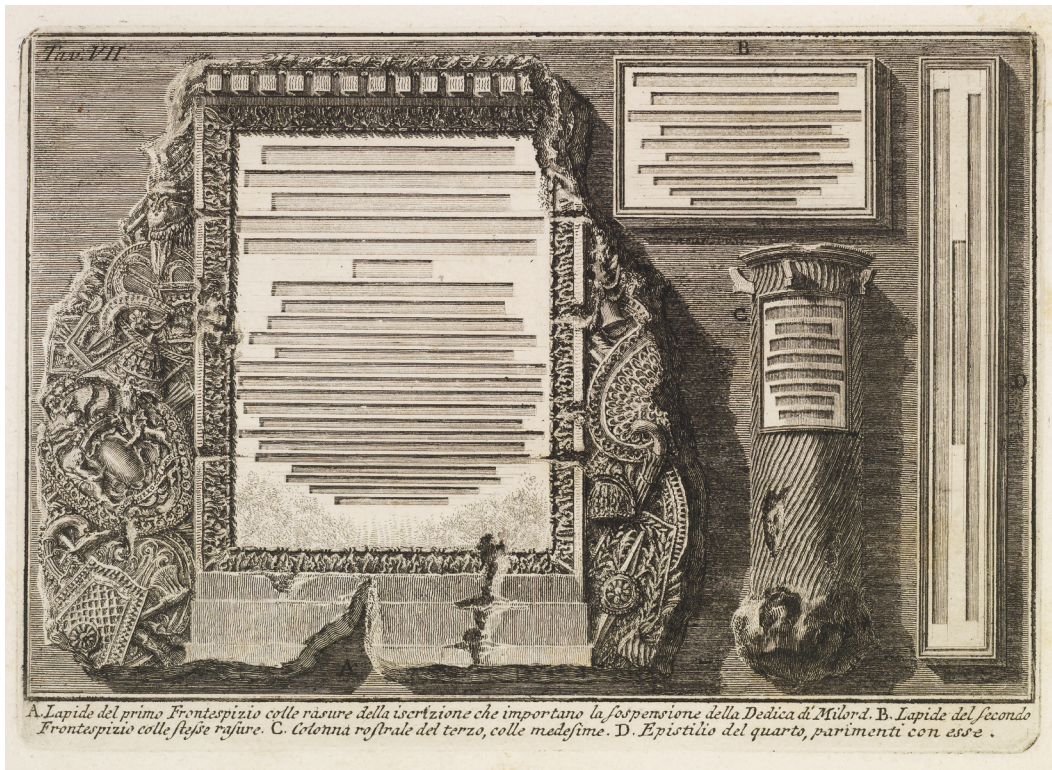 Tav. VII.
B
C
D
A
A. Lapide del primo Frontespizio colle rasure della iscrizione che importano la sospensione della Dedica di Milord. B. Lapide del secondo
Frontespizio colle stesse rasure. C. Colonna rostrale del terzo, colle medesime. D. Epistilio del quarto, parimenti con esse.